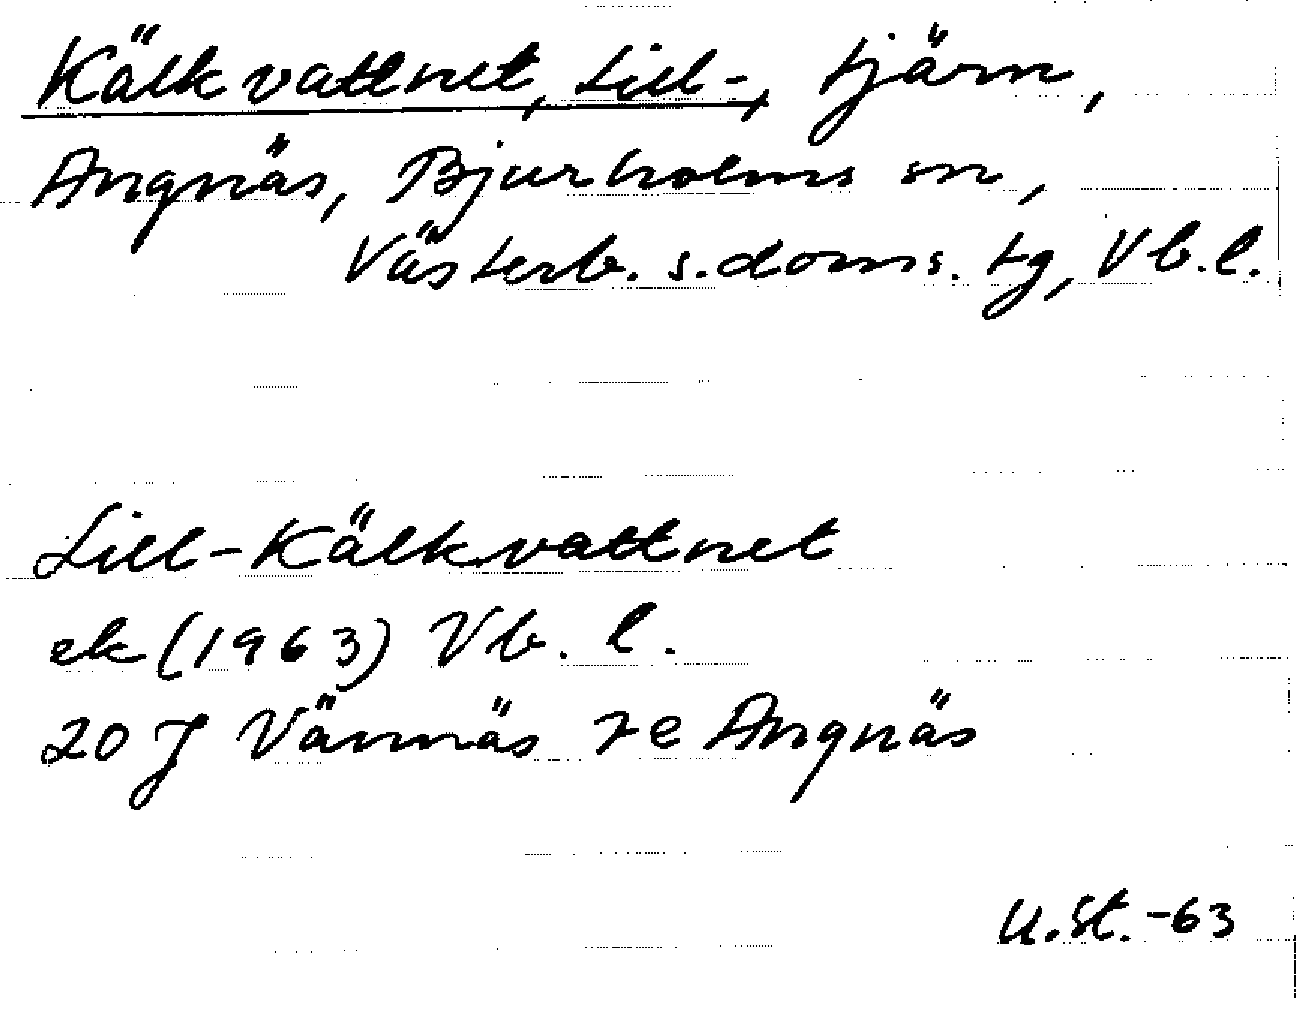 Kälkvattnet, Lill-, tjärn,
Angnäs, Bjurholms sn,
Västerb. s. doms. tg, Vb. l.
Lill-Kälkvattnet
ek (1963) Vb. l.
20 J Vännäs 7 e Angnäs
U. St. -63